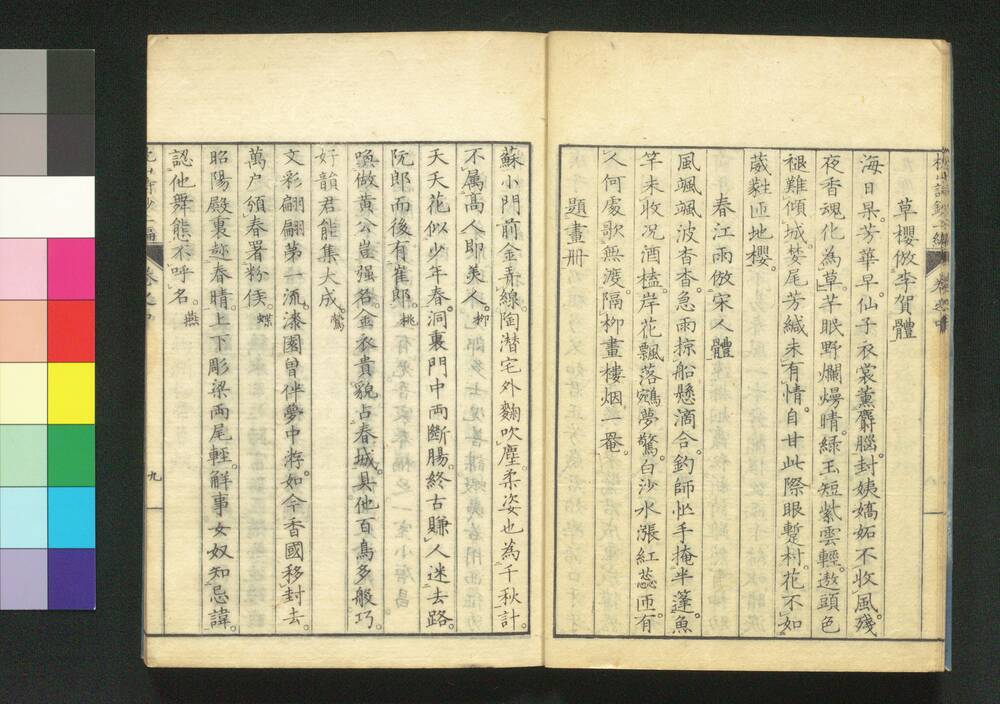 草櫻倣李賀體
海日杲。芳華早。仙子衣裳薰麝腦。封姨嬌妬不收風。殘
夜香魂化為草。芊眠野爛熳晴。綠玉短。紫雲輕。遨頭色
褪難傾城。婪尾芳緘未有情。自甘此際眼蹔村。花不如
葳蕤匝地櫻。
春江雨倣宋人體
風颯颯。波杳杳。急雨掠船懸滴合。釣師怭手掩半蓬。魚
竿未收况酒榼。岸花飄落鵷夢驚。白沙水漲紅蕊匝。有
人何處歌無渡。隔柳畫樓烟一罨。
題畫冊
蘇小門前金弄線。陶潛宅外麴吹塵。柔姿也為千秋計。
不屬高人即美人。柳
夭夭花似少年春。洞裏門中両斷腸。終古賺人迷去路。
阮郎而後有崔郎。桃
喚做黄公豈强名。金衣貴貌占春城。具他百鳥多般巧。
好韻君能集大成。鶯
文彩翩翩第一流。漆園曾伴夢中游。如今香國移封去。
萬户頒春署粉侯。蝶
昭陽殿裏跡春晴。上下彫梁両尾輕。觧事女奴知忌諱。
認他舞態不呼名。燕
九